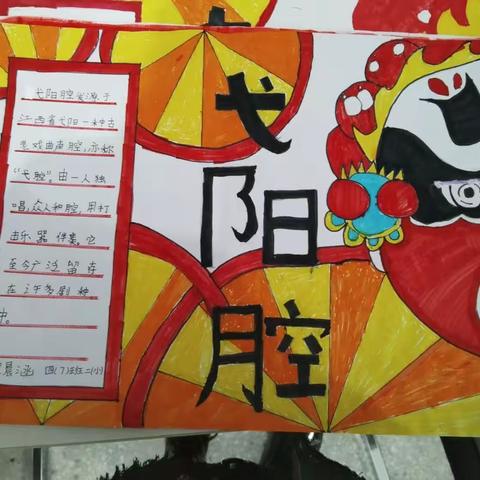 弋阳腔
弋阳腔发源于
江西省弋阳一种古
老戏曲声腔,亦称
“弋腔”。由一人独
唱,众人和腔,用打
击乐器伴奏。它
至今广泛留存
在许多剧种
中。
晨涵 四(7)班